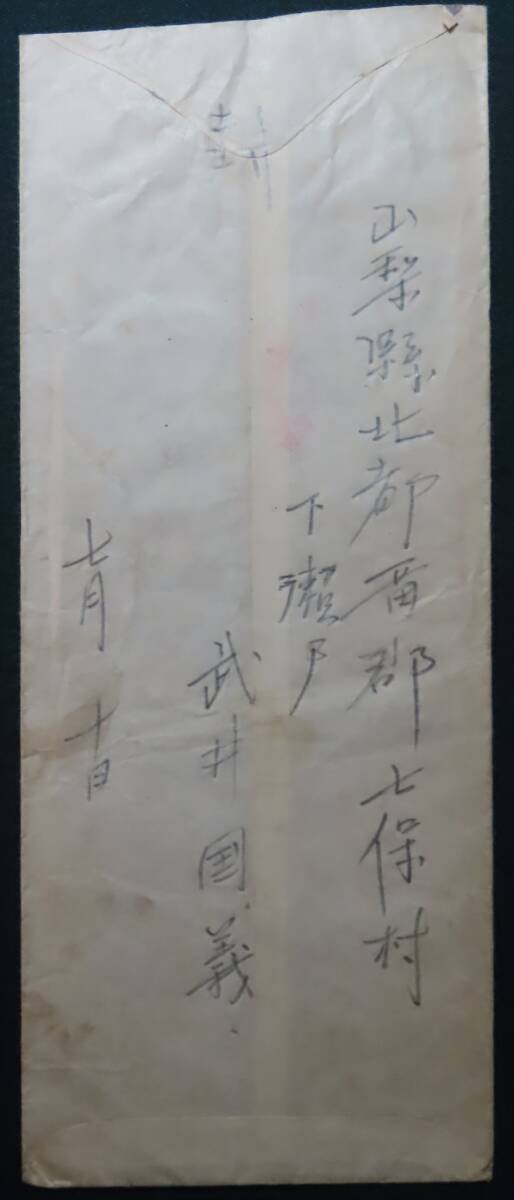 山梨縣北都留郡七保村
下瀬戸
武井国義
七月十日
封